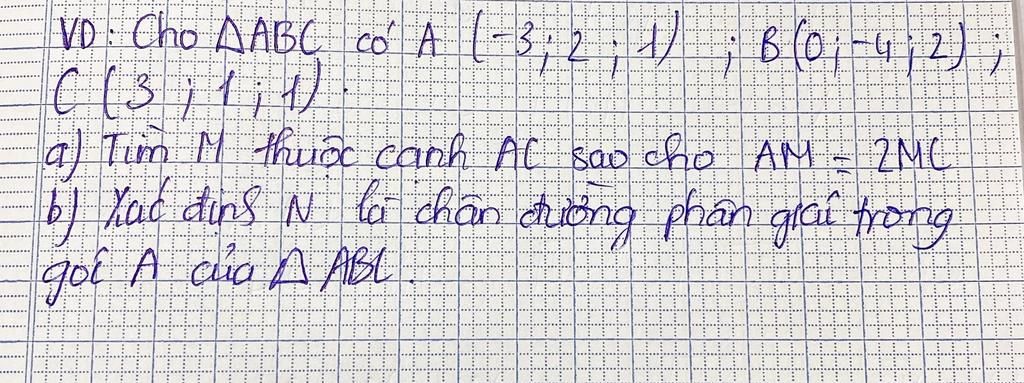 VD: Cho ΔABC có A (-3; 2; 1) ; B(0; -4; 2) ;
C (3 ; 1; 1).
a) Tìm M thuộc cạnh AC sao cho AM = 2MC
b) Xác định N là chân đường phân giác trong
góc A của Δ ABC.